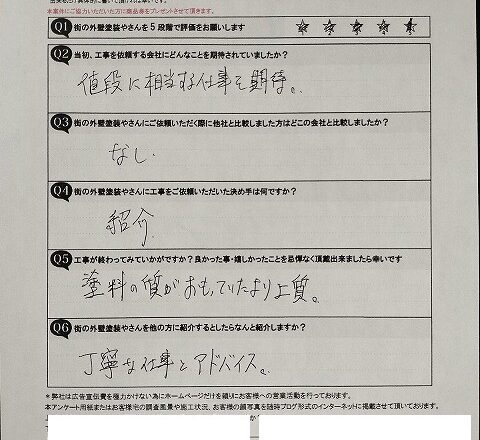 本案件にご協力いただいた方に商品券をプレゼントさせて頂きます。
Q1 街の外壁塗装やさんを5段階で評価をお願いします ☆ ☆ ☆ ☆ ☆
Q2 当初、工事を依頼する会社にどんなことを期待されていましたか?
値段に相当する仕事を期待。
Q3 街の外壁塗装やさんにご依頼いただく際に他社と比較しました方はどこの会社と比較しましたか?
なし.
Q4 街の外壁塗装やさんに工事をご依頼いただいた決め手は何ですか?
紹介.
Q5 工事が終わってみていかがですか?良かった事・嬉しかったことを忌憚なく頂戴出来ましたら幸いです
塗料の質がおもっていたより上質。
Q6 街の外壁塗装やさんを他の方に紹介するとしたらなんと紹介しますか?
丁寧な仕事とアドバイス。
*弊社は広告宣伝費を極力かけない為にホームページだけを頼りにお客様への営業活動を行っております。
本アンケート用紙またはお客様宅の調査風景や施工状況、お客様の顔写真を随時ブログ形式のインターネットに掲載させて頂いております。